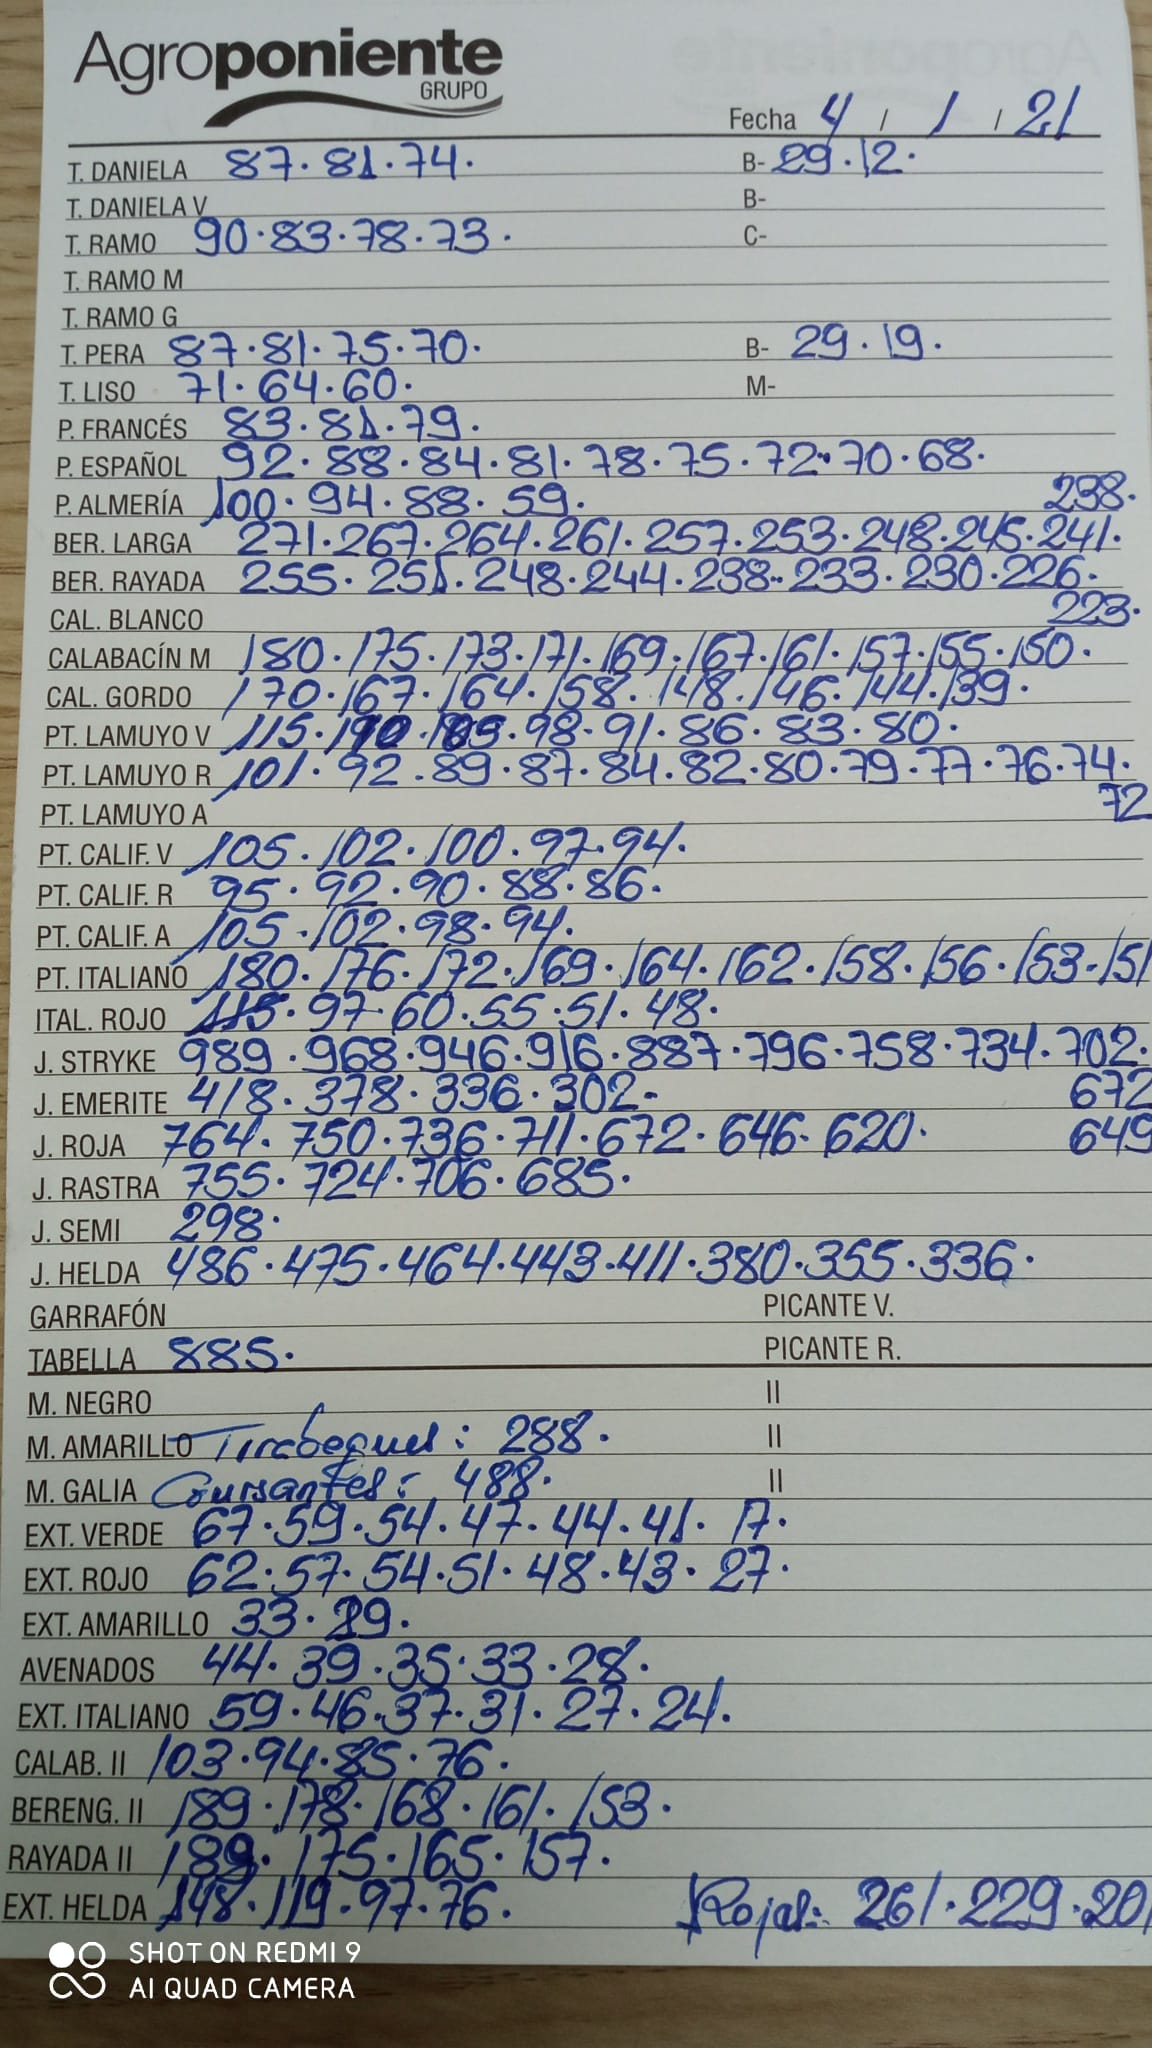 Agroponiente
GRUPO
Fecha 4 / 1 / 21
T. DANIELA 87. 81. 74. B- 29. 12.
T. DANIELA V B-
T. RAMO 90. 83. 78. 73. C-
T. RAMO M
T. RAMO G
T. PERA 87. 81. 75. 70. B- 29. 19.
T. LISO 71. 64. 60. M-
P. FRANCÉS 83. 81. 79.
P. ESPAÑOL 92. 88. 84. 81. 78. 75. 72. 70. 68.
P. ALMERÍA 100. 94. 88. 59. 238.
BER. LARGA 271. 267. 264. 261. 257. 253. 248. 245. 241.
BER. RAYADA 255. 251. 248. 244. 238. 233. 230. 226.
CAL. BLANCO 223.
CALABACÍN M 180. 175. 173. 171. 169. 167. 161. 157. 155. 150.
CAL. GORDO 170. 167. 164. 158. 148. 146. 144. 139.
PT. LAMUYO V 115. 98. 91. 86. 83. 80.
PT. LAMUYO R 101. 92. 89. 87. 84. 82. 80. 79. 77. 76. 74.
PT. LAMUYO A 72
PT. CALIF. V 105. 102. 100. 97. 94.
PT. CALIF. R 95. 92. 90. 88. 86.
PT. CALIF. A 105. 102. 98. 94.
PT. ITALIANO 180. 176. 172. 169. 164. 162. 158. 156. 153. 151
ITAL. ROJO 115. 97. 60. 55. 51. 48.
J. STRYKE 989. 968. 946. 916. 887. 796. 758. 734. 702.
J. EMERITE 418. 378. 336. 302. 672
J. ROJA 764. 750. 736. 711. 672. 646. 620. 649
J. RASTRA 755. 724. 706. 685.
J. SEMI 298.
J. HELDA 486. 475. 464. 443. 411. 380. 355. 336.
GARRAFÓN PICANTE V.
TABELLA 885. PICANTE R.
M. NEGRO II
M. AMARILLO Tirabeques: 288. II
M. GALIA Guisantes: 488. II
EXT. VERDE 67. 59. 54. 47. 44. 41. 17.
EXT. ROJO 62. 57. 54. 51. 48. 43. 27.
EXT. AMARILLO 33. 29.
AVENADOS 44. 39. 35. 33. 28.
EXT. ITALIANO 59. 46. 37. 31. 27. 24.
CALAB. II 103. 94. 85. 76.
BERENG. II 189. 178. 168. 161. 153.
RAYADA II 189. 175. 165. 157.
EXT. HELDA 148. 119. 97. 76. Rojas: 261. 229. 201
SHOT ON REDMI 9
AI QUAD CAMERA